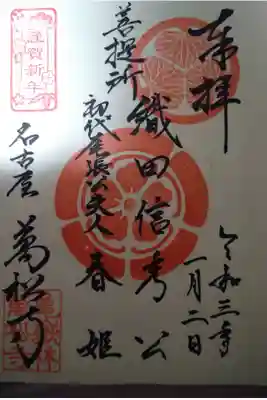 奉拝
令和三年
一月二日
織田信秀公
菩提所
初代尾張公夫人 春姫
名古屋 萬松寺
謹賀新年